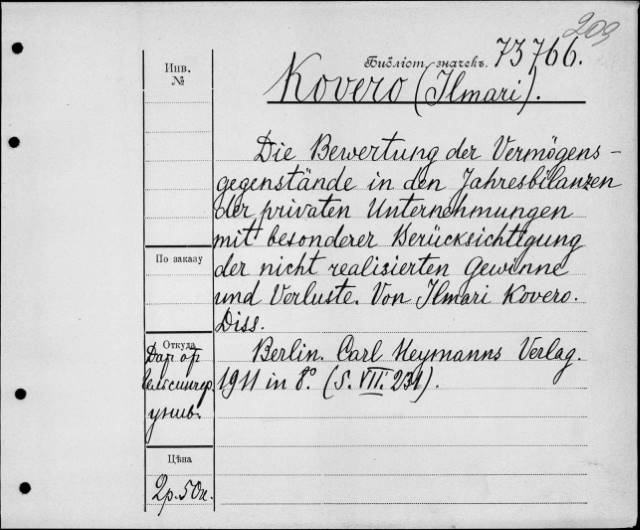 209
Библіот. значекъ. 73766.
Инв.
№
Kovero (Ilmari).
Die Bewertung der Vermögens-
gegenstände in den Jahresbilanzen
der privaten Unternehmungen
mit besonderer Berücksichtigung
der nicht realisierten Gewinne
und Verluste. Von Ilmari Kovero.
Diss.
Berlin. Carl Heymanns Verlag.
1911 in 8º. (S. VII. 231).
По заказу
Откуда
Дар от
Гельсингф.
унив.
Цѣна
2р. 50к.